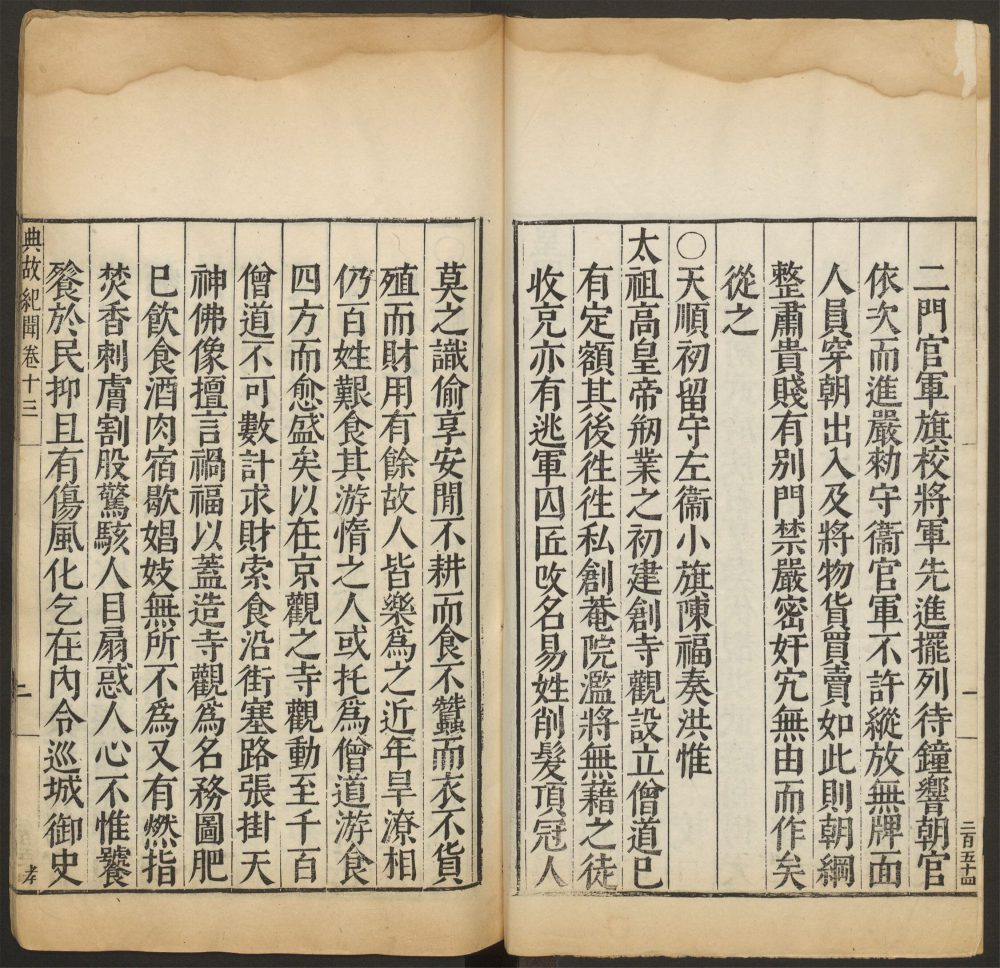 二門官軍旗校將軍先進擺列待鐘響朝官
依次而進嚴勑守衞官軍不許縱放無牌面
人員穿朝出入及將物貨買賣如此則朝綱
整肅貴賤有别門禁嚴密奸宄無由而作矣
從之
〇天順初留守左衞小旗陳福奏洪惟
太祖高皇帝刱業之初建創寺觀設立僧道已
有定額其後徃徃私創菴院濫將無藉之徒
收充亦有逃軍囚匠改名易姓削髮頂冠人
莫之識偷享安閒不耕而食不蠶而衣不貨
殖而財用有餘故人皆樂爲之近年旱潦相
仍百姓艱食其游惰之人或托爲僧道游食
四方而愈盛矣以在京觀之寺觀動至千百
僧道不可數計求財索食沿街塞路張掛天
神佛像擅言禍福以蓋造寺觀爲名務圖肥
已飲食酒肉宿歇娼妓無所不爲又有燃指
焚香刺膚割股驚駭人目扇惑人心不惟饕
餮於民抑且有傷風化乞在內令巡城御史
典故紀聞卷十三
二
孝
一
二百五十四